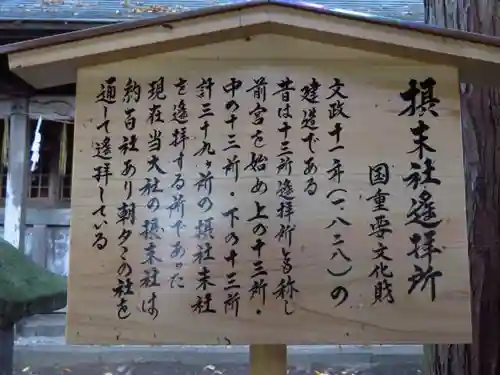 摂末社遙拝所
国重要文化財
文政十一年(一八二八)の
建造である
昔は十三所遙拝所と称し
前宮を始め上の十三所・
中の十三所・下の十三所
計三十九ヶ所の摂社末社
を遙拝する所であった
現在当大社の摂末社は
約百社あり朝夕この社を
通して遙拝している